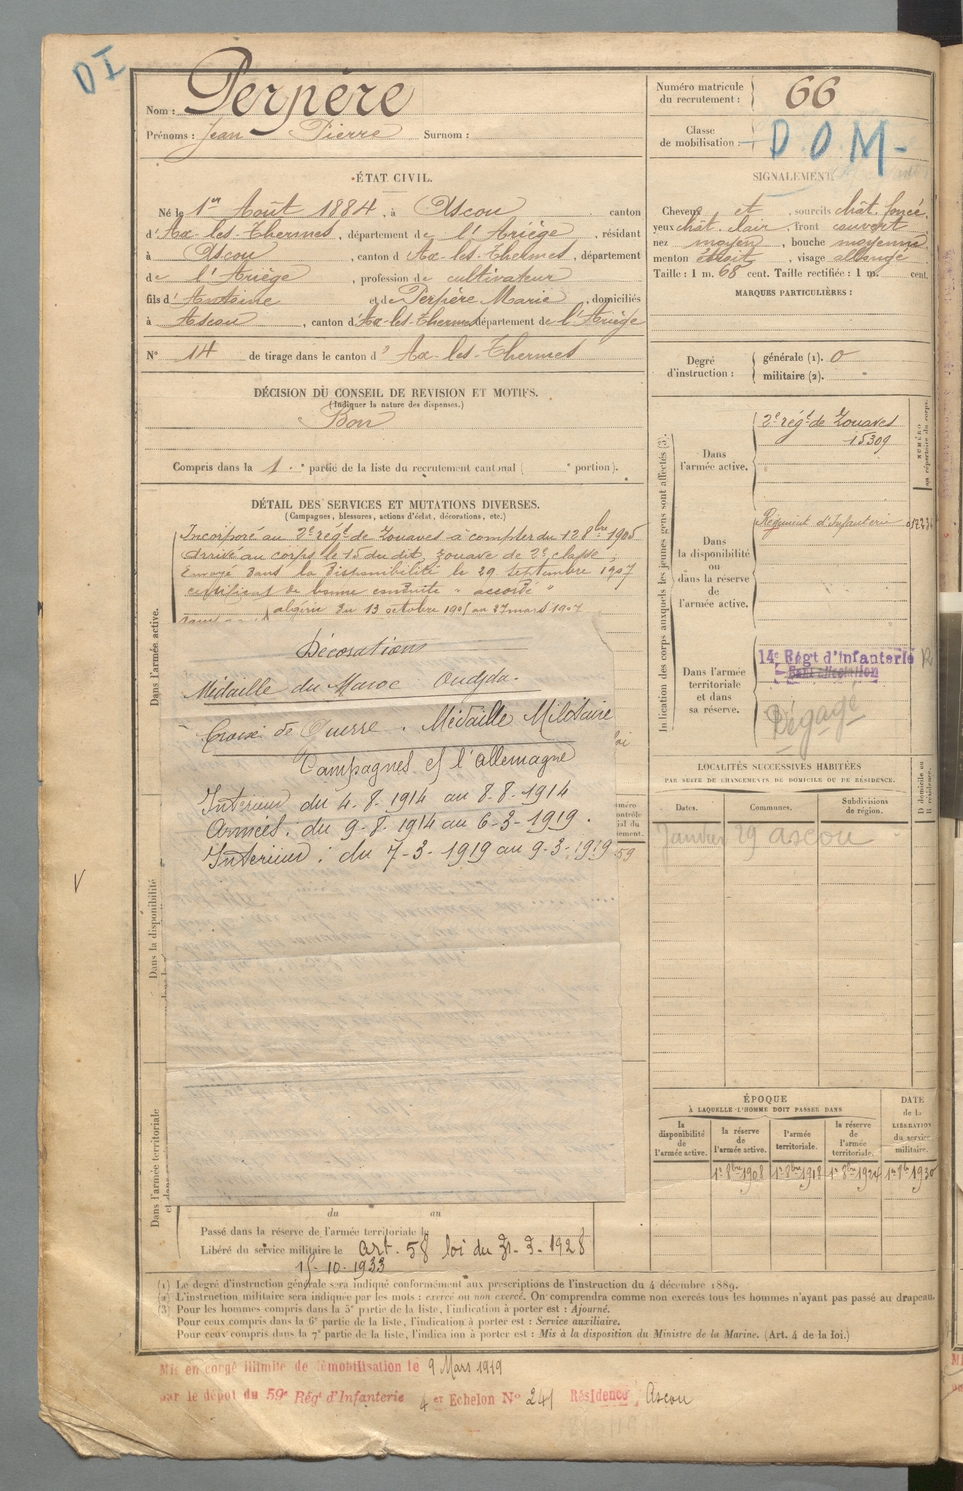 D I
Nom : Perpère
Prénoms : Jean Pierre Surnom :
ÉTAT CIVIL.
Né le 1er Août 1884, à Ascou canton
d'Ax-les-Thermes, département de l'Ariège, résidant
à Ascou, canton d'Ax-les-Thermes, département
de l'Ariège, profession de cultivateur
fils d'Antoine et de Perpère Marie, domiciliés
à Ascou, canton d'Ax-les-Thermes département de l'Ariège
N° 14 de tirage dans le canton d' Ax-les-Thermes
DÉCISION DU CONSEIL DE REVISION ET MOTIFS.
(Indiquer la nature des dispenses.)
Bon
Compris dans la 1 e partie de la liste du recrutement cantonal ( e portion).
DÉTAIL DES SERVICES ET MUTATIONS DIVERSES.
(Campagnes, blessures, actions d'éclat, décorations, etc.)
Incorporé au 2e régt de Zouaves à compter du 12 8bre 1905
Arrivé au corps le 15 du dit, zouave de 2e classe.
Envoyé dans la disponibilité le 29 Septembre 1907
certificat de bonne conduite "accordé"
algérie du 13 octobre 1905 au 27 mars 1907
Dans l'armée active.
Décorations
Médaille du Maroc Oudjda.
Croix de Guerre. Médaille Militaire
Campagnes c/ l'allemagne
Intérieur du 4-8-1914 au 8-8-1914
Armées : du 9-8-1914 au 6-3-1919.
Intérieur : du 7-3-1919 au 9-3-1919
59
Dans la disponibilité
Dans l'armée territoriale
V
du au
Passé dans la réserve de l'armée territoriale le
Libéré du service militaire le art. 58 loi du 31-3-1928
15-10-1933
Numéro matricule
du recrutement : 66
Classe
de mobilisation : D.O.M-
SIGNALEMENT
Cheveux et sourcils chât. foncé,
yeux chât. clair, front couvert
nez moyen, bouche moyenne
menton étroit, visage allongé
Taille : 1 m. 68 cent. Taille rectifiée : 1 m. cent.
MARQUES PARTICULIÈRES :
Degré
d'instruction :
générale (1). 0
militaire (2). "
Indication des corps auxquels les jeunes gens sont affectés (3).
Dans
l'armée active.
2e régt de Zouaves
15309
Dans
la disponibilité
ou
dans la réserve
de
l'armée active.
Régiment d'Infanterie
Dans l'armée
territoriale
et dans
sa réserve.
14e Régt d'Infanterie
Dégagé
LOCALITÉS SUCCESSIVES HABITÉES
PAR SUITE DE CHANGEMENTS DE DOMICILE OU DE RÉSIDENCE.
Dates. Communes. Subdivisions
de région.
D domicile ou
R résidence.
Janvier 29 ascou
ÉPOQUE
À LAQUELLE L'HOMME DOIT PASSER DANS
la
disponibilité
de
l'armée active.
la réserve
de
l'armée active.
l'armée
territoriale.
la réserve
de
l'armée
territoriale.
DATE
de la
LIBÉRATION
du service
militaire.
1er 8bre 1908 1er 8bre 1918 1er 8bre 1924 1er 8bre 1930
(1) Le degré d'instruction générale sera indiqué conformément aux prescriptions de l'instruction du 4 décembre 1889.
(2) L'instruction militaire sera indiquée par les mots : exercé ou non exercé. On comprendra comme non exercés tous les hommes n'ayant pas passé au drapeau.
(3) Pour les hommes compris dans la 5e partie de la liste, l'indication à porter est : Ajourné.
Pour ceux compris dans la 6e partie de la liste, l'indication à porter est : Service auxiliaire.
Pour ceux compris dans la 7e partie de la liste, l'indication à porter est : Mis à la disposition du Ministre de la Marine. (Art. 4 de la loi.)
Mis en congé illimité de démobilisation le 9 Mars 1919
par le dépôt du 59e Régt d'Infanterie 4 er Echelon N° 241 Résidence Ascou